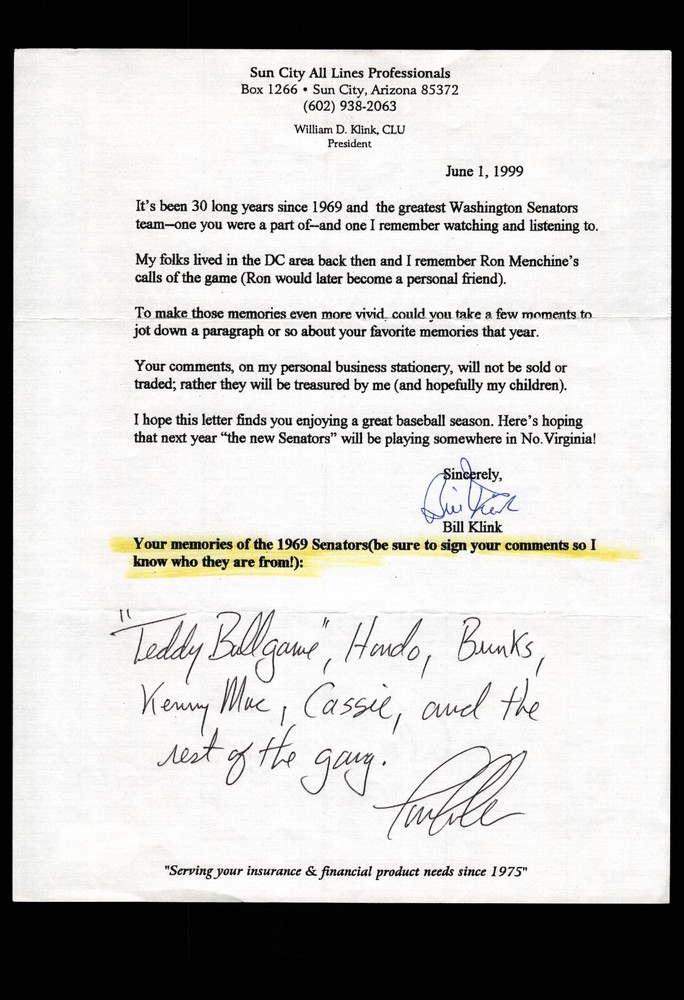 Sun City All Lines Professionals
Box 1266 • Sun City, Arizona 85372
(602) 938-2063
William D. Klink, CLU
President
June 1, 1999
It's been 30 long years since 1969 and the greatest Washington Senators
team--one you were a part of--and one I remember watching and listening to.
My folks lived in the DC area back then and I remember Ron Menchine's
calls of the game (Ron would later become a personal friend).
To make those memories even more vivid, could you take a few moments to
jot down a paragraph or so about your favorite memories that year.
Your comments, on my personal business stationery, will not be sold or
traded; rather they will be treasured by me (and hopefully my children).
I hope this letter finds you enjoying a great baseball season. Here's hoping
that next year "the new Senators" will be playing somewhere in No.Virginia!
Sincerely,
Bill Klink
Bill Klink
Your memories of the 1969 Senators(be sure to sign your comments so I
know who they are from!):
"Teddy Ballgame", Hondo, Bunks,
Kenny Mac, Cassie, and the
rest of the gang.
"Serving your insurance & financial product needs since 1975"